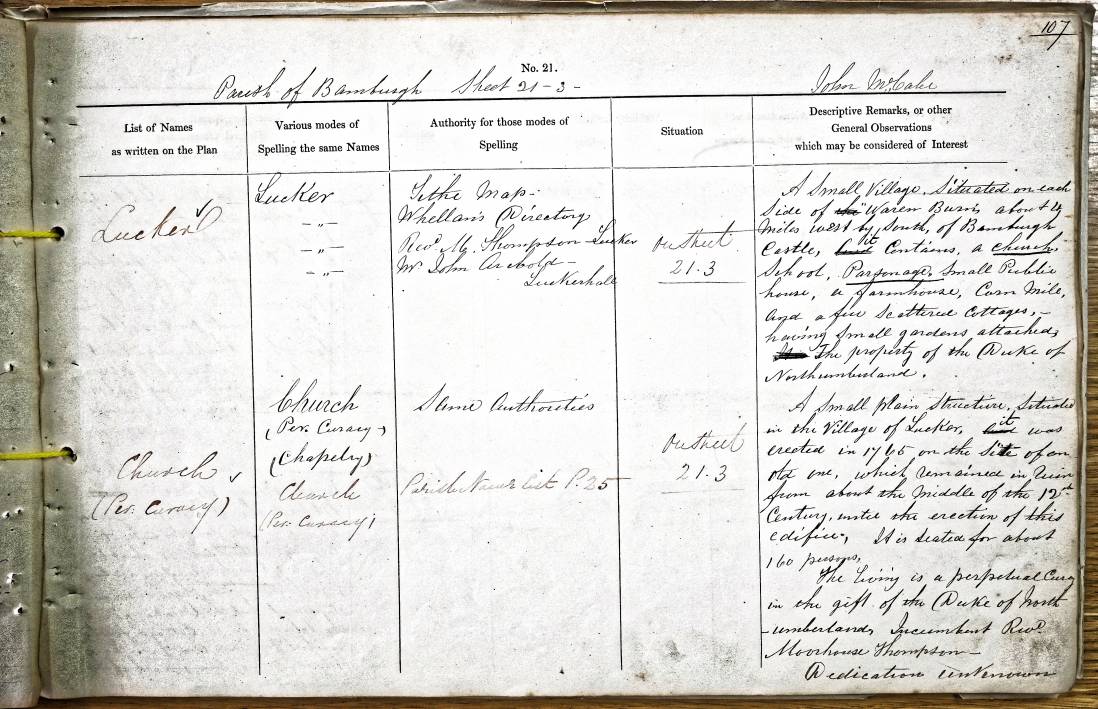 107
No. 21.
Parish of Bamburgh Sheet 21-3- John McCabe
List of Names
as written on the Plan
Various modes of
Spelling the same Names
Authority for those modes of
Spelling
Situation
Descriptive Remarks, or other
General Observations
which may be considered of Interest
Lucker
Lucker
-"-
-"-
-"-
Tithe Map-
Whellan's Directory
Revd. M. Thompson-Lucker
Mr John Archbold-
Luckerhall
On Sheet
21.3
A Small Village, Situated on each
side of the Waren Burn, about 4
Miles west by South, of Bamburgh
Castle, and it Contains, a Church,
School, Parsonage, Small Public
house, a farmhouse, Corn Mill,
and a few scattered Cottages,-
having small gardens attached,
The property of the Duke of
Northumberland.
Church
(Per. Curacy)
Church
(Per. Curacy)
(Chapelry)
Church
(Per. Curacy)
Same Authorities
P. 25
On Sheet
21.3
A Small plain Structure, Situated
in the Village of Lucker, it was
erected in 1765 on the site of an
old one, which remained in Ruin
from about the Middle of the
Century, until the erection of this
edifice, It is seated for about
160 persons,
The living is a perpetual Curacy
in the gift of the Duke of North
-umberland, Incumbent Revd.
Moorhouse Thompson-
Dedication unknown